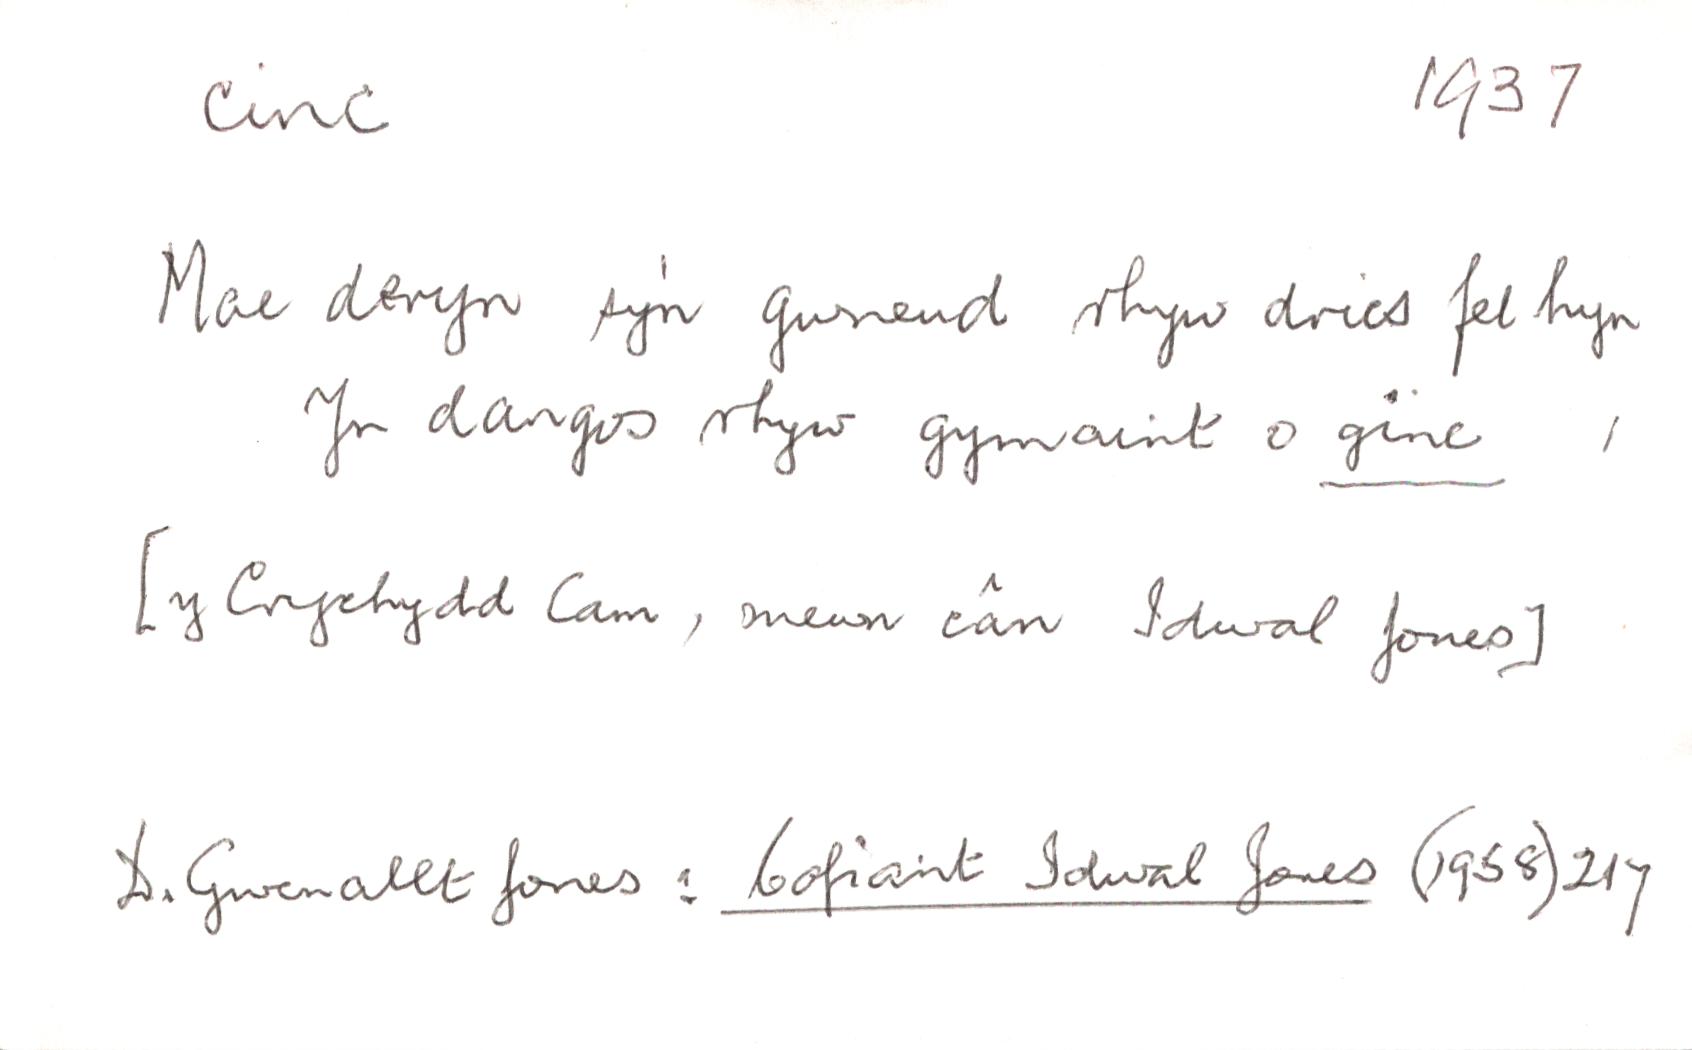 cinc 1937
Mae deryn sy'n gwneud rhyw drics fel hyn
Yn dangos rhyw gymaint o ginc,
[y Crychydd Cam, mewn cân Idwal Jones]
D. Gwenallt Jones: Cofiant Idwal Jones (1958) 217